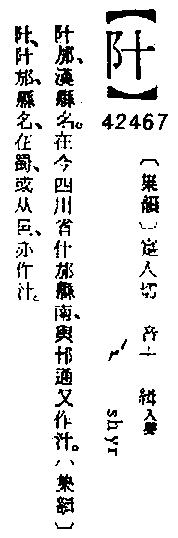 【阡】
42467
〔集韻〕寔入切 音十 緝入聲
ㄕˊ shyr
阡邡、漢縣名。在今四川省什邡縣南、與邡通又作汁。〔集韻〕
阡、阡邡、縣名、在蜀、或从邑、亦作汁。